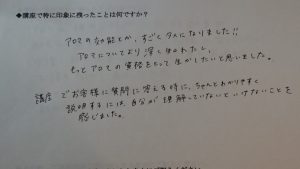 ◆講座で特に印象に残ったことは何ですか？
アロマの効能とか、すごくタメになりました!!
アロマについてより深く知れたし、
もっとアロマの資格をとって生かしたいと思いました。
講座 でお客様に質問に答える時に、ちゃんとわかりやすく
説明するには自分が理解していないといけないことを
感じました。